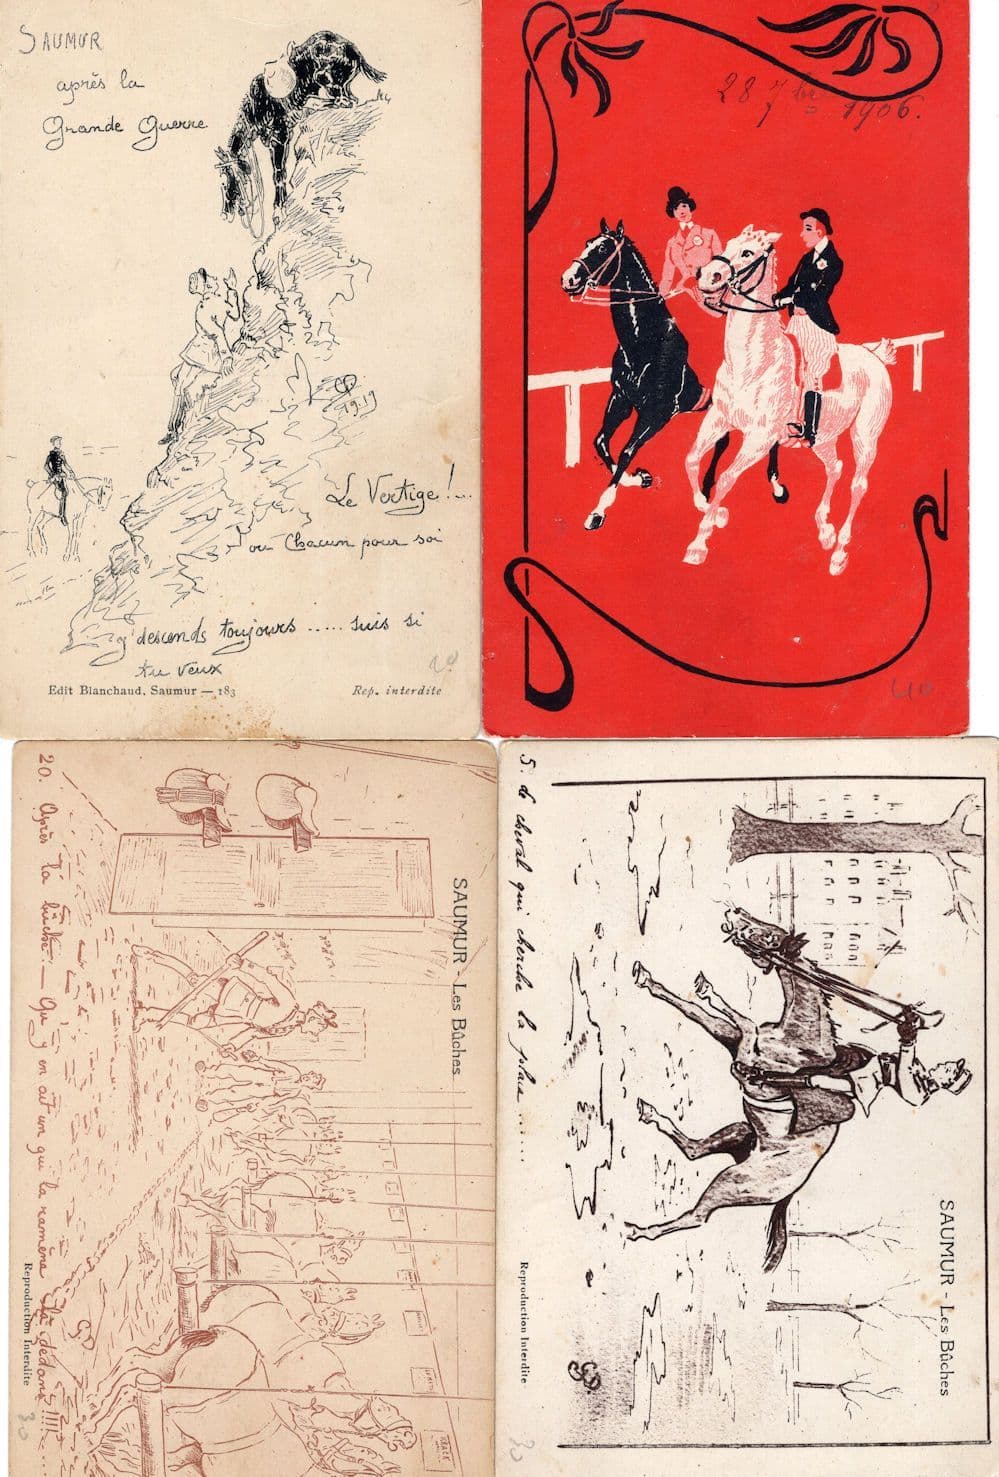 SAUMUR
après la
Grande Guerre
1919
Le Vertige !...
ou Chacun pour soi
j'descends toujours ..... suis si
tu veux
Edit Blanchaud, Saumur — 183
Rep. interdite
28 7bre 1906.
SAUMUR - Les Bûches
20. Après la bûche — Qu'y en ait un qui la ramène là dedans !!!!...
GD
Reproduction Interdite
30
SAUMUR - Les Bûches
5. de cheval qui cherche la place ......
Reproduction Interdite